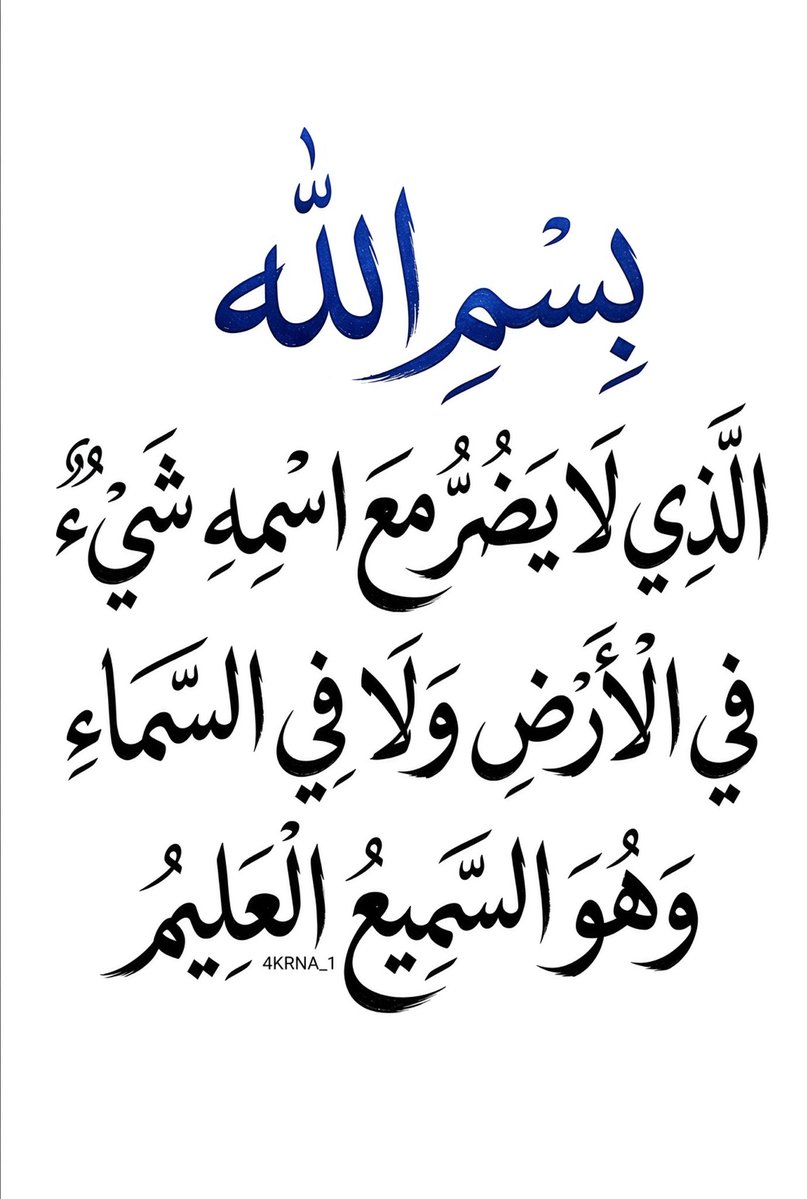 بِسْمِ اللّٰه
الَّذِي لَا يَضُرُّ مَعَ اسْمِهِ شَيْءٌ
فِي الْأَرْضِ وَلَا فِي السَّمَاءِ
وَهُوَ السَّمِيعُ الْعَلِيمُ
4KRNA_1